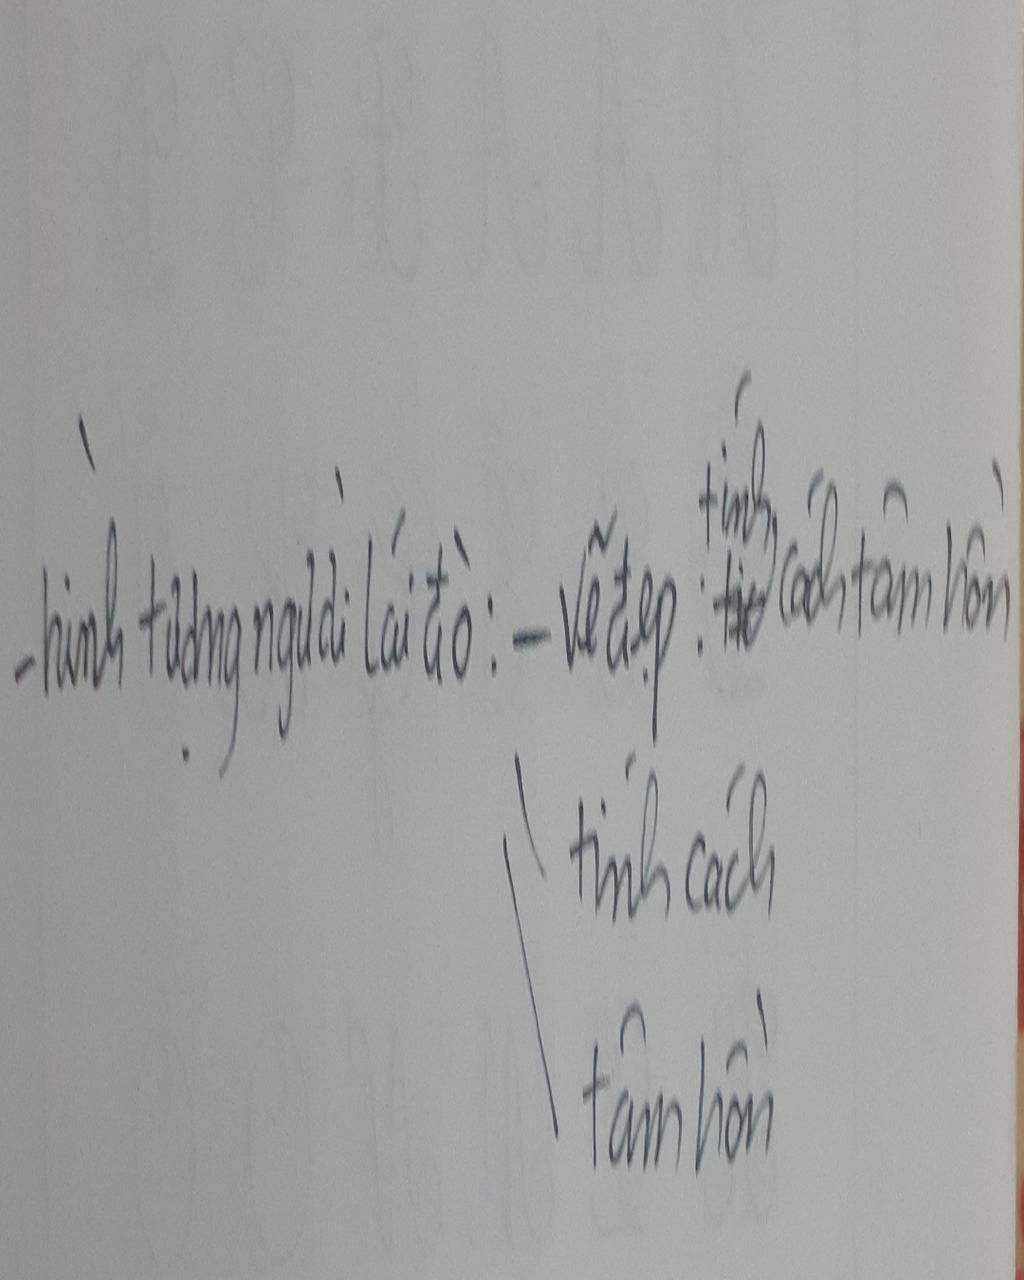 - hình tượng người lái đò : - vẽ đẹp : tính cách tâm hồn
tính cách
tâm hồn